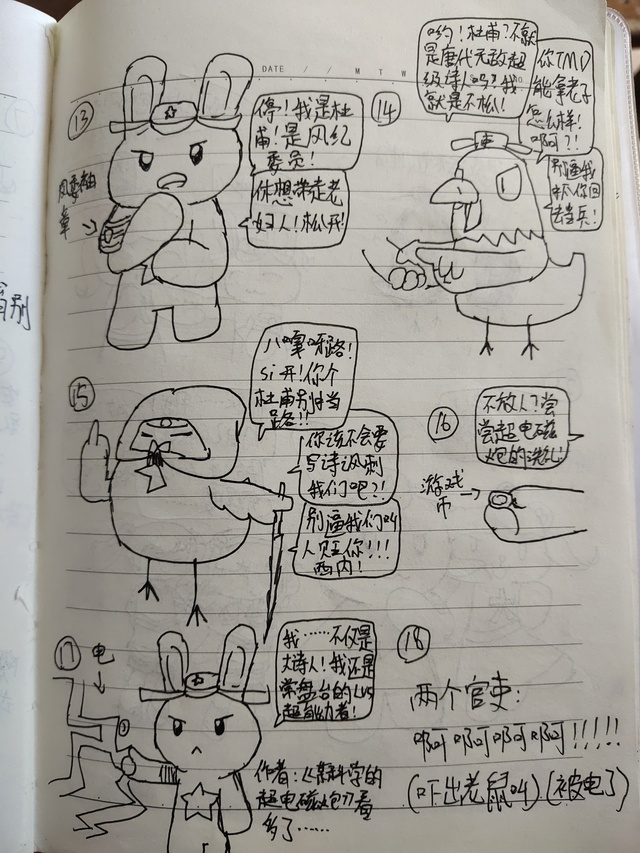 DATE / / M T W
⑬
停！我是杜
甫！是风纪
委员！
休想带走老
妇人！松开！
风委袖
章
⑭
哟！杜甫？不就
是唐代无敌超
级诗人吗？我
就是不松！
你TMD
能拿老子
怎么样！
啊？！
别逼我
抓你回
去当兵！
吏
⑮
八嘎呀路！
si开！你个
杜甫别挡
路！！
你该不会要
写诗讽刺
我们吧？！
别逼我们叫
人贬你！！！
⑯
不放人？尝
尝超电磁
炮的洗礼！
游戏
币
⑰
电
我……不仅是
大诗人！我还是
常盘台的LV5
超能力者！
作者：《某科学的
超电磁炮》看
多了……
⑱
两个官吏：
啊啊啊啊！！！！！
（吓出老鼠叫）（被电了）
别